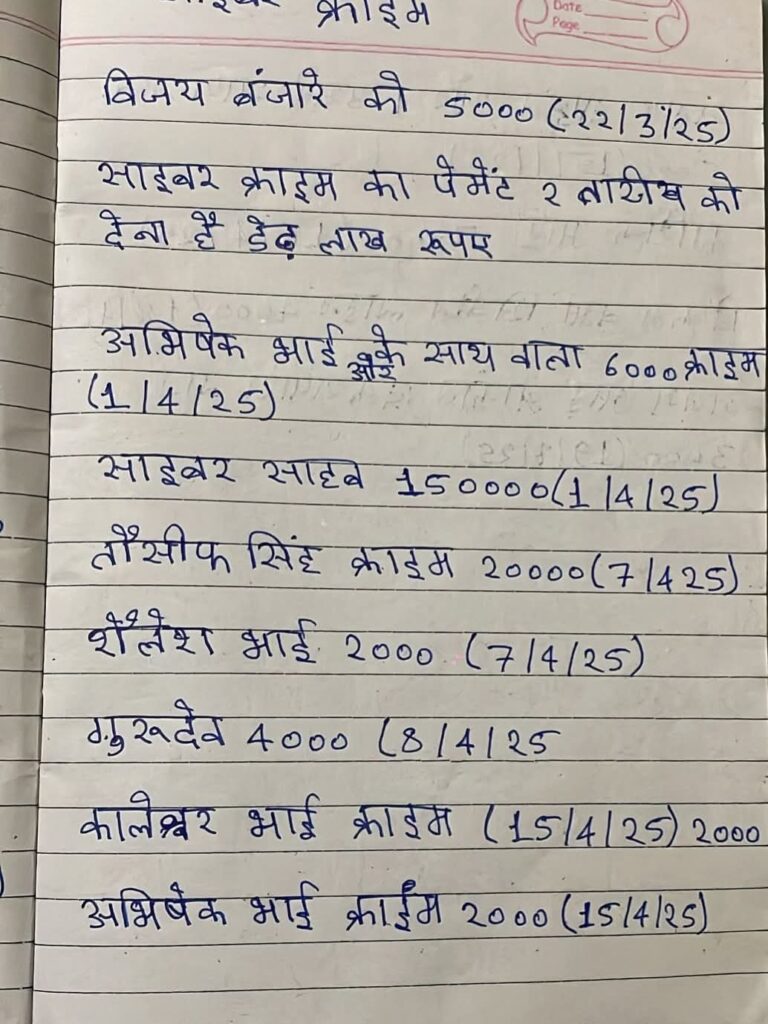 साइबर क्राइम
Date
Page
विजय बंजारे को 5000 (22/3/25)
साइबर क्राइम का पेमेंट 2 तारीख को
देना है डेढ़ लाख रूपए
अभिषेक भाई के साथ वाला 6000 क्राइम
(1/4/25)
साइबर साहब 150000 (1/4/25)
तौसीफ सिंह क्राइम 20000 (7/425)
शैलेश भाई 2000 (7/4/25)
गुरूदेव 4000 (8/4/25
कालेश्वर भाई क्राइम (15/4/25) 2000
अभिषेक भाई क्राईम 2000 (15/4/25)